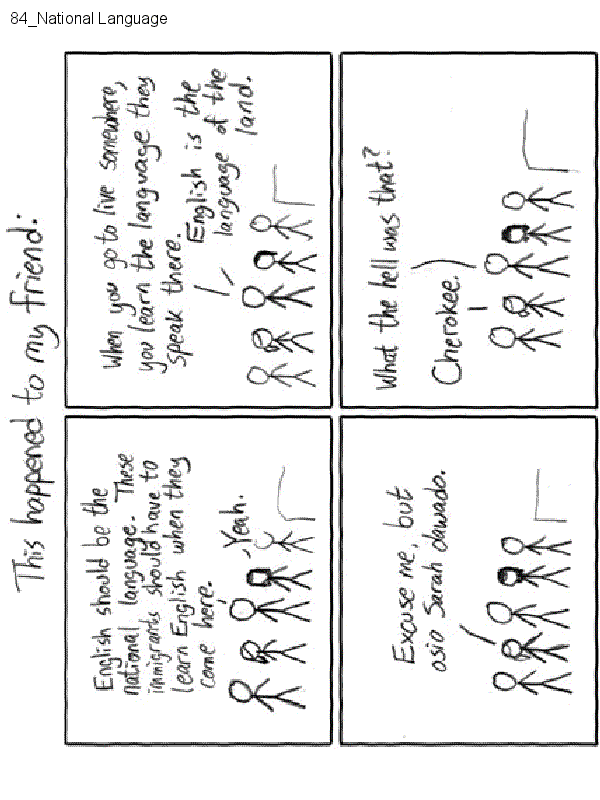 84_National Language
This happened to my friend:
English should be the
national language. These
immigrants should have to
learn English when they
come here.
Yeah.
When you go to live somewhere,
you learn the language they
speak there.
English is the
language of the
land.
Excuse me, but
osio Sarah dawado.
What the hell was that?
Cherokee.